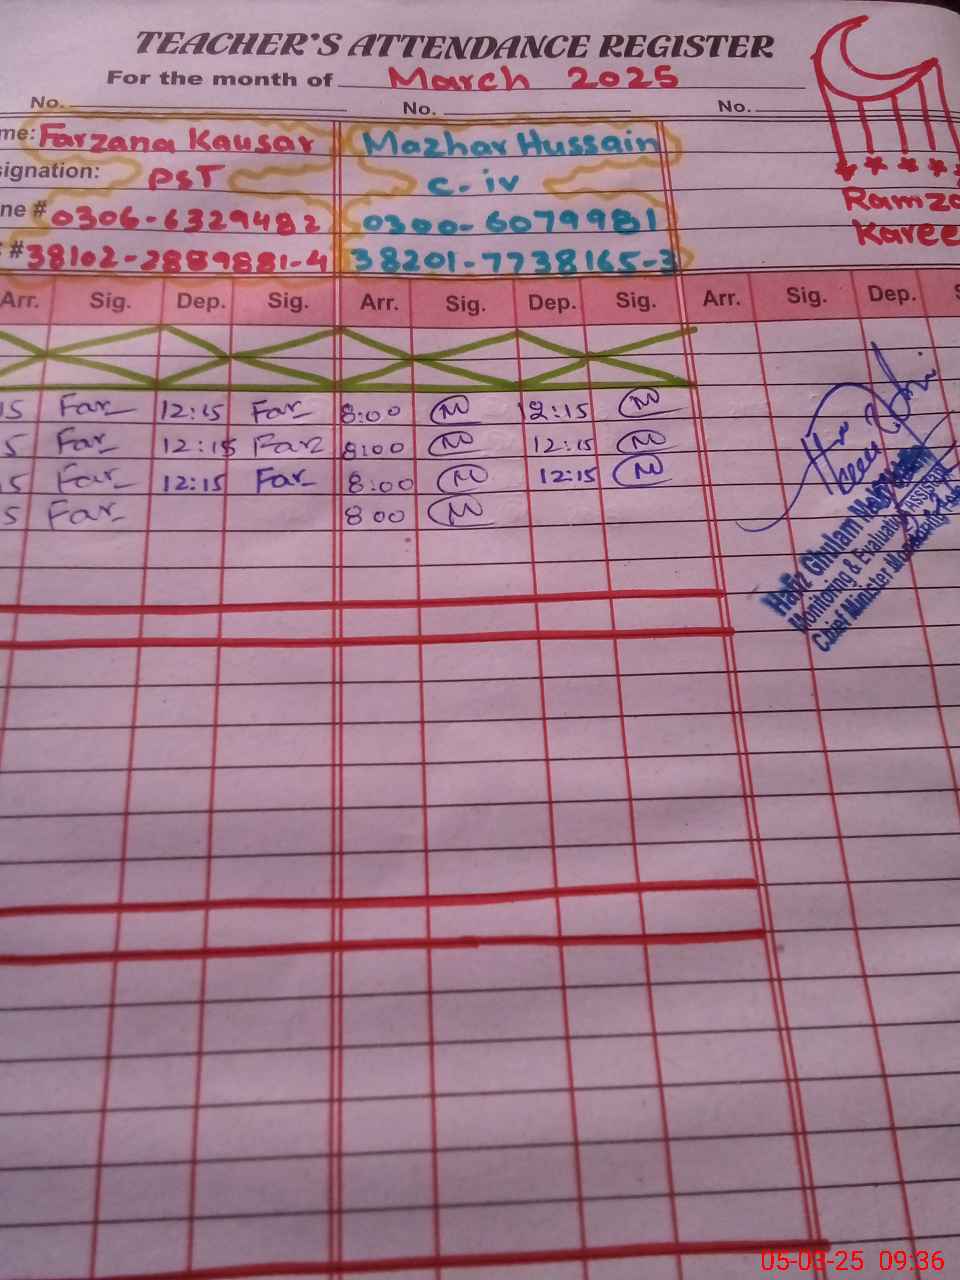 TEACHER'S ATTENDANCE REGISTER
For the month of March 2025
No. No. No.
me: Farzana Kausar Mazhar Hussain
signation: PST C-iv
ne # 0306-6329482 0300-6079981
# 38102-2889881-4 38201-7738165-3
Ramza
Karee
Arr. Sig. Dep. Sig. Arr. Sig. Dep. Sig. Arr. Sig. Dep. S
15 Far 12:15 Far 8:00 M 12:15 M
5 Far 12:15 Far 8:00 M 12:15 M
5 Far 12:15 Far 8:00 M 12:15 M
5 Far 8 00 M
Hafiz Ghulam
Monitoring & Evaluation Assistant
Chief Minister Monitoring
05-03-25 09:36